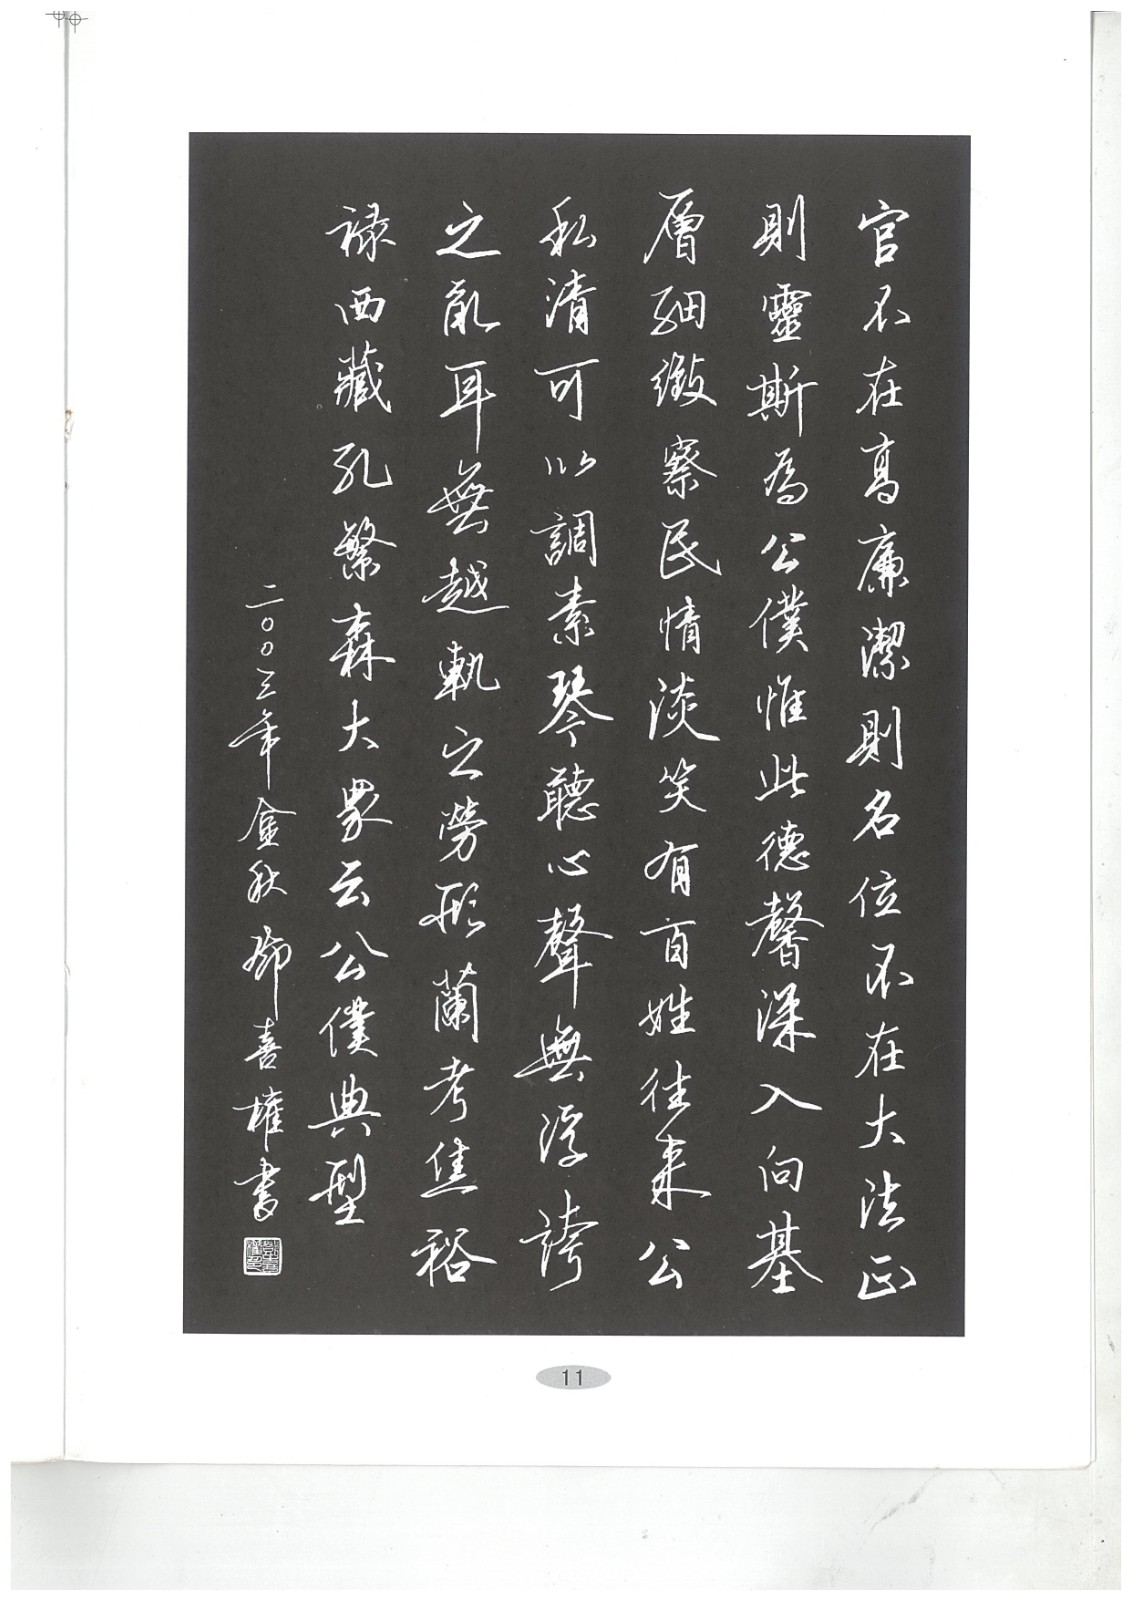 官不在高廉潔則名位不在大法正
則靈斯為公僕惟此德馨深入向基
層細緻察民情淡笑有百姓往来公
私清可以調素琴聽心聲無浮誇
之亂耳無越軌之勞形蘭考焦裕
祿西藏孔繁森大眾云公僕典型
二〇〇三年金秋鄧喜權書
11